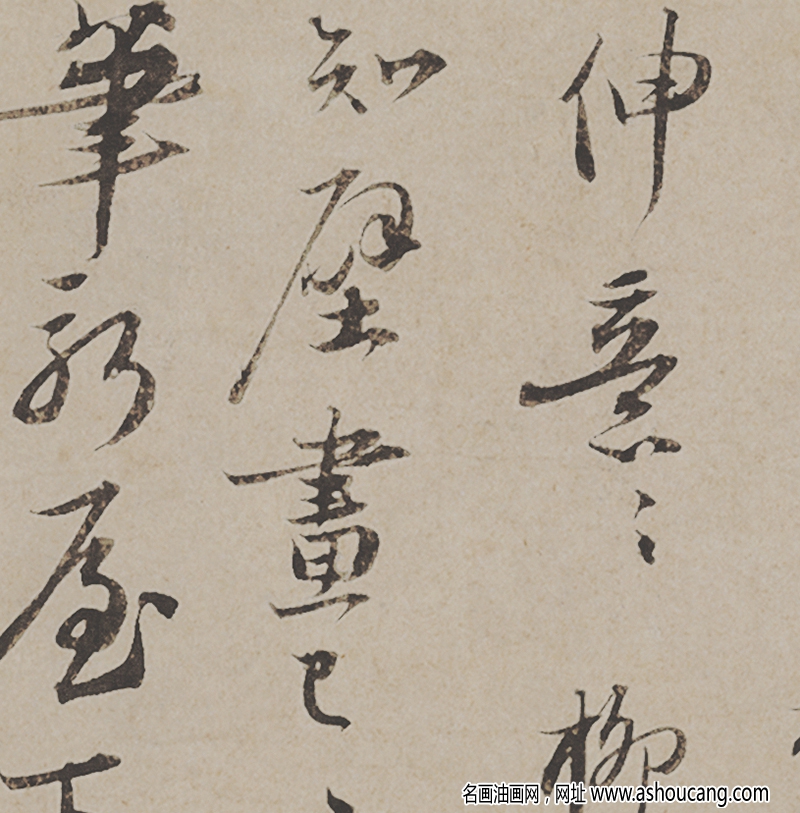 伸意〻柳
知壁畫已
筆新屋
名画油画网，网址 www.ashoucang.com